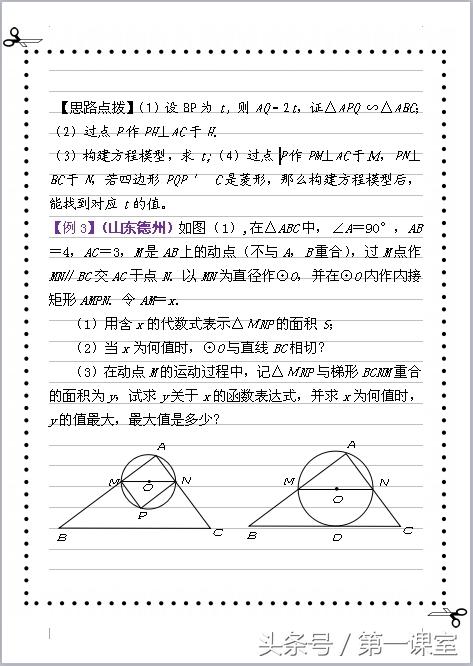 【思路点拨】(1)设 BP 为 t, 则 AQ=2t, 证△APQ ∽△ABC;
(2)过点 P 作 PH⊥AC 于 H.
(3)构建方程模型, 求 t; (4)过点 P 作 PM⊥AC 于 M, PN⊥
BC 于 N, 若四边形 PQP′ C 是菱形, 那么构建方程模型后,
能找到对应 t 的值。
【例 3】(山东德州)如图(1), 在△ABC 中, ∠A=90°, AB
=4, AC=3, M 是 AB 上的动点(不与 A, B 重合), 过 M 点作
MN∥BC 交 AC 于点 N. 以 MN 为直径作⊙O, 并在⊙O 内作内接
矩形 AMPN. 令 AM=x.
(1)用含 x 的代数式表示△MNP 的面积 S;
(2)当 x 为何值时, ⊙O 与直线 BC 相切?
(3)在动点 M 的运动过程中, 记△MNP 与梯形 BCNM 重合
的面积为 y, 试求 y 关于 x 的函数表达式, 并求 x 为何值时,
y 的值最大, 最大值是多少?
A
M
O
N
P
B
C
A
M
O
N
B
D
C
头条号 / 第一课室